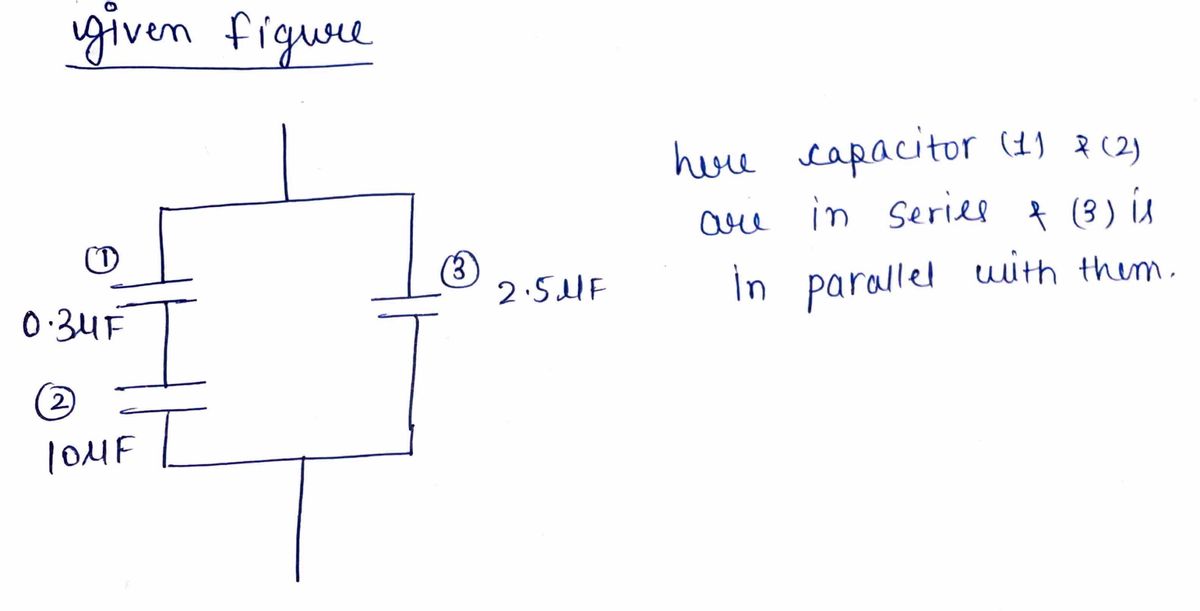 given figure
here capacitor (1) & (2)
are in series & (3) is
in parallel with them.
①
0.3μF
②
10μF
③
2.5μF